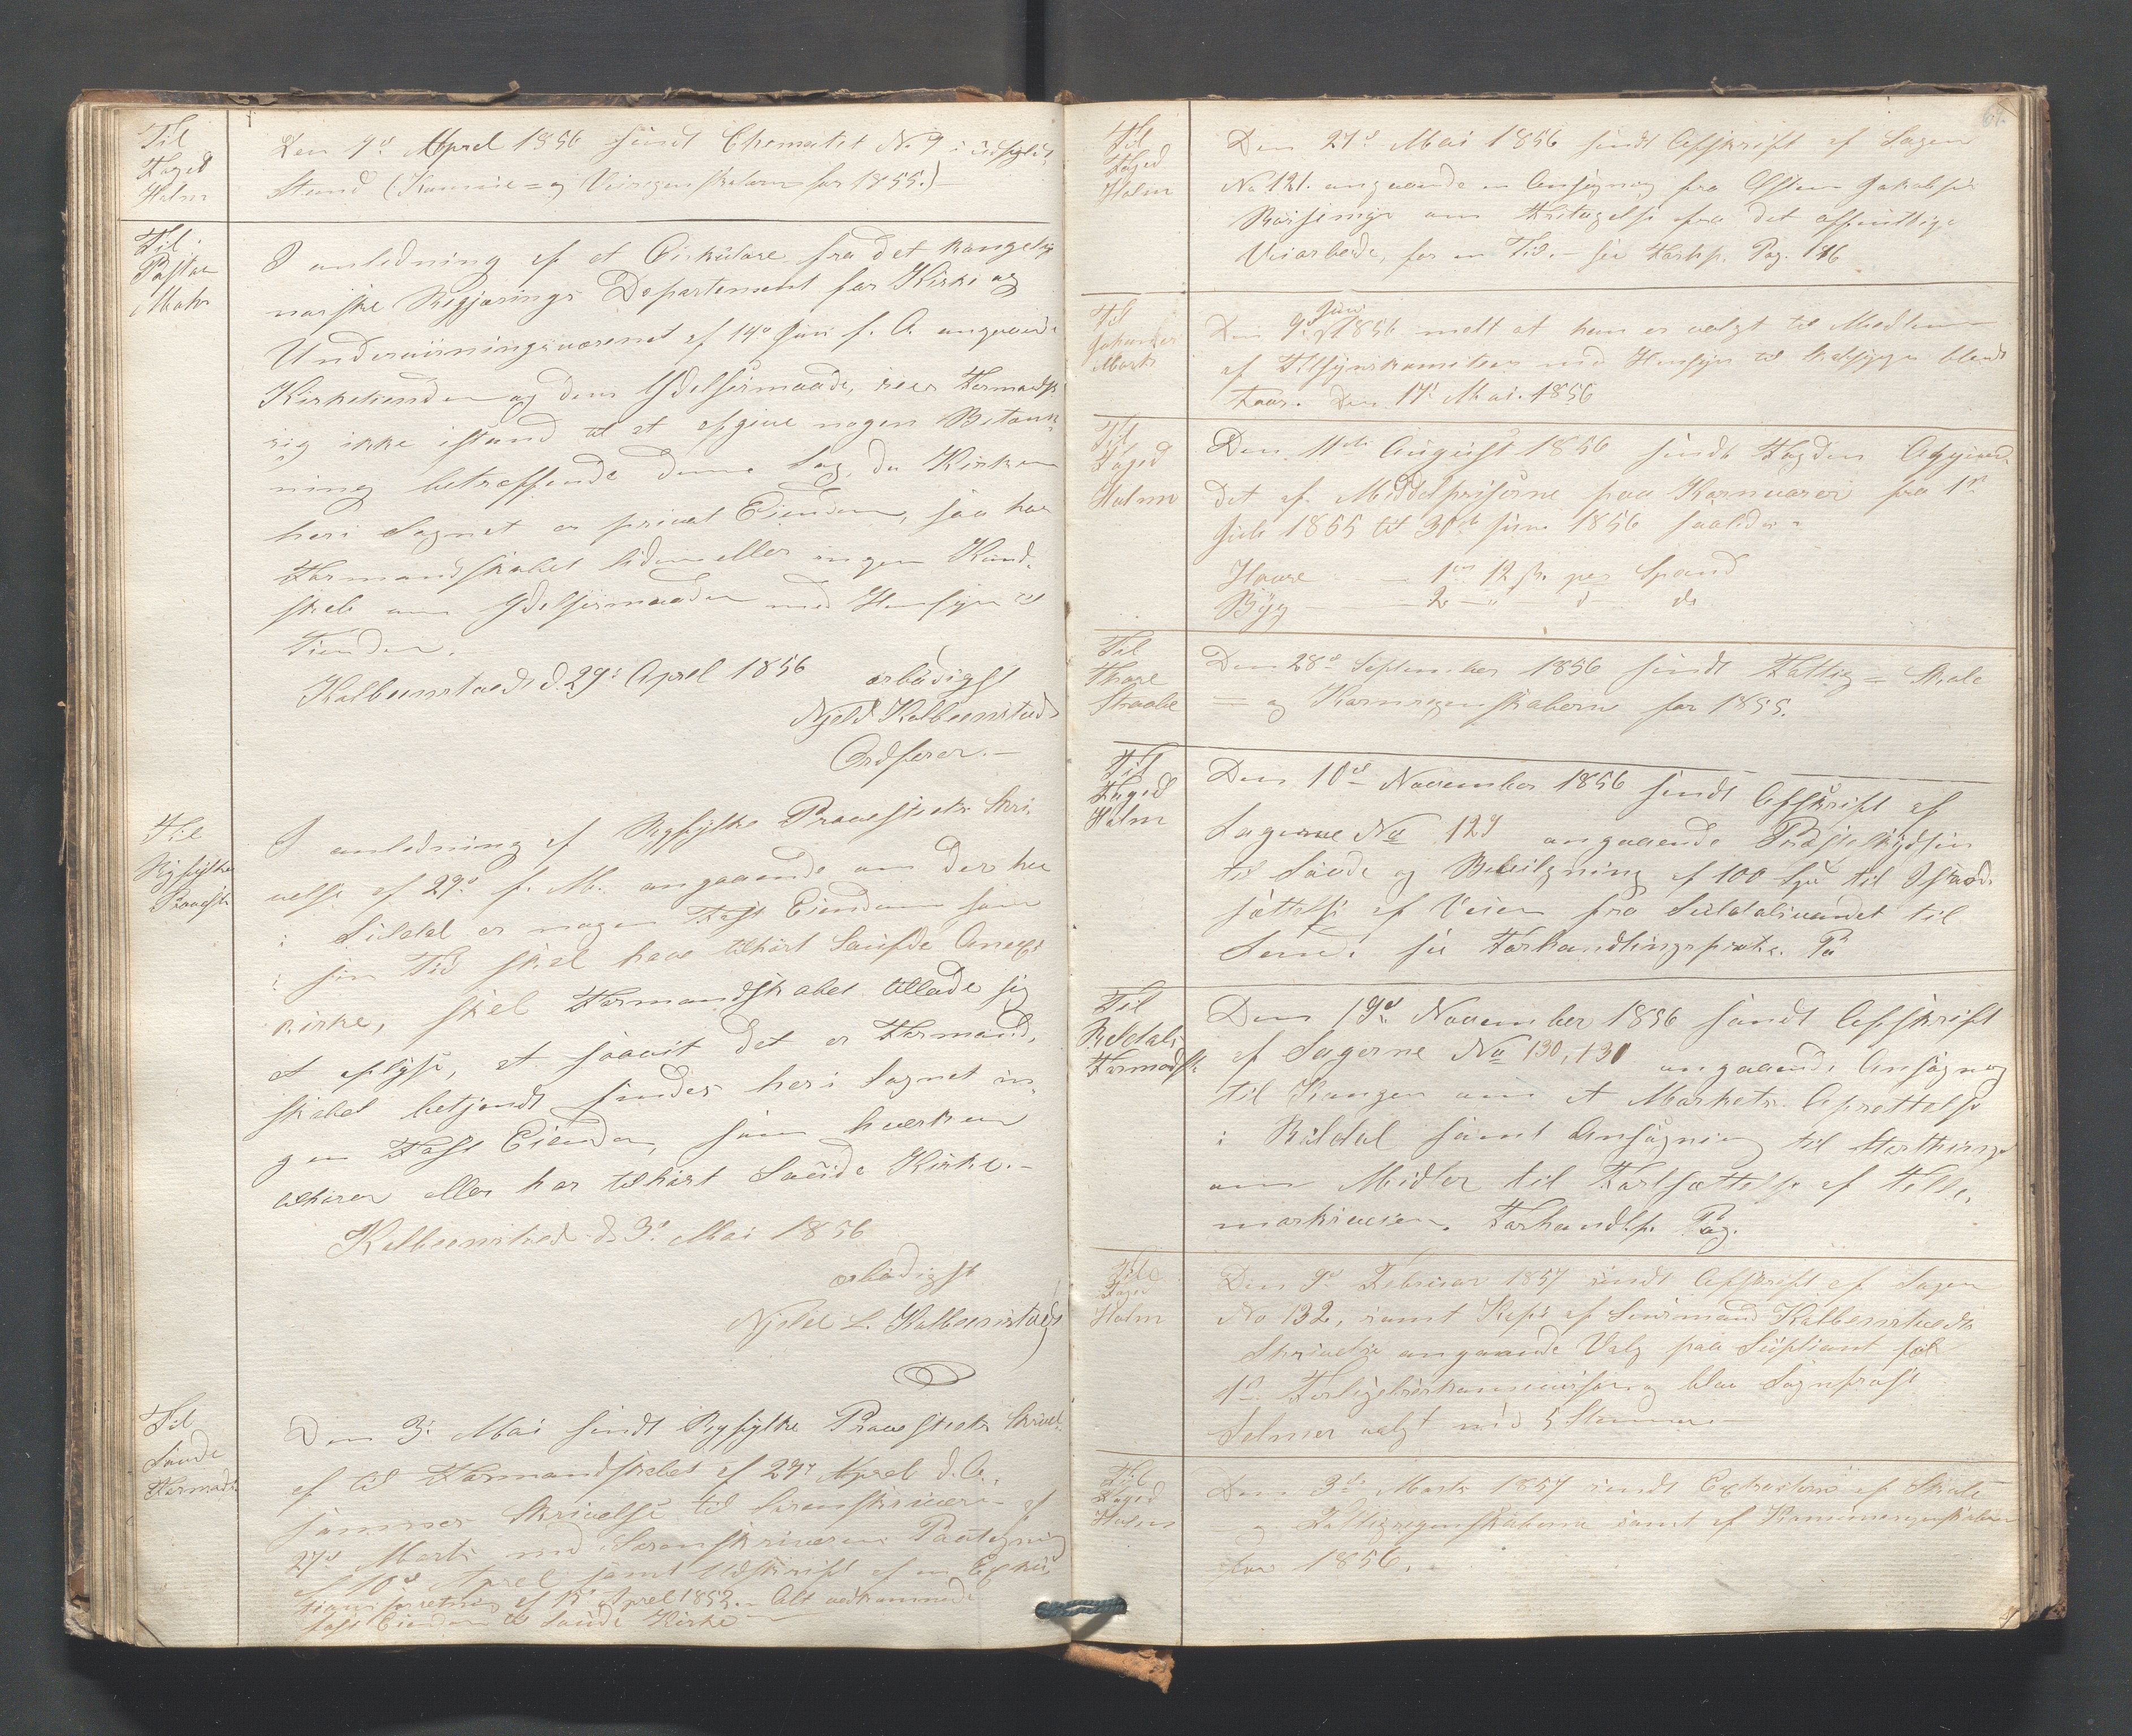 Til
Foged
Holm
Den 7de Aprel 1856 sendt Chematet No 9 i udfyldt
Stand (Kommune= og Veiregenskaberne for 1855.)—
Til
Pastor
Mohr
I anledning af et Cirkulære fra det kongelig
norske Regjærings Departement for Kirke og
Undervisningsvæsenet af 14de Juni f. A. angaaende
Kirketienden og dens Ydelsesmaade, seer Formandsk.
sig ikke istand til at afgive nogen Betænk-
ning betræffende denne Sag, da Kirken
her i Sognet er privat Eiendom, saa har
Formandskabet liden eller ingen Kund-
skab om Ydelsesmaaden med Hensyn til
Tienden.
Kolbeenstvedt d. 29de Aprel 1856
ærbødigst
Njeld Kolbeenstvedt
Ordfører.—
Til
Ryfylke
Provsti
I anledning af Ryfylke Provesties Skri-
velse af 29de f. M. angaaende om der her
i Suldal er nogen Fast Eiendom som
i sin Tid skal have tilhørt Saude Anex
kirke, skal Formandskabet tillade sig
at oplyse, at saavit det er Formand-
skabet bekjendt findes her i Sognet in-
gen Fast Eiendom, som hverken
tilhører eller har tilhørt Saude Kirke.—
Kolbeenstvedt d. 3de Mai 1856
ærbødigst
Njeld L. Kolbeenstvedt
Til
Saude
Formands
Den 3de Mai sendt Ryfylke Provesties Skrivel-
af til Formandskabet af 29de Aprel d. A.
sammes Skrivelse til Sorenskriveren af
27de Marts med Sorenskriverens Paategning
af 10de Aprel samt Udskrift af en Exeku
tionsforretning af 15 Aprel 1852.— Alt vedkommende
fast Eiendom til Saude Kirke—
61.
Til
Foged
Holm
Den 27de Mai 1856 sendt Afskrift af Sagen
No 121. angaaende en Ansøgning fra Østen Jakobsen
om Fritagelse fra det offentlige
Veiarbeide, for en Tid.— see Forhp. Pag. 146
Til
Johannes
Mork
Den 9de Juni 1856 meldt at han er valgt til Medlem
af Tilsynskomiteen med Hensyn til blandt
Faar. Den 17de Mai. 1856
Til
Foged
Holm
Den 11te August 1856 sendt Fogden Opgivend
det af Middelpriserne paa Kornvarer fra 1de
Juli 1855 til 30te Juni 1856 saaledes:
Havre — 1 12 sk. per Spand
Byg — 2 — " d do
Til
Thore
Straabe
Den 28de September 1856 sendt Fattig= Skole
= og Kornregenskaberne for 1855.
Til
Foged
Holm
Den 10de November 1856 sendt Afskrift af
Sagerne No 129 angaaende Præsteskydsen
til Saude og Bevilgning af 100 Spd til Istand-
sættelse af Veien fra Suldalsvandet til
Sand. see Forhandlingsprotk. Pa
Til
Røldals
Formandsk.
Den 19de November 1856 sendt Afskrift
af Sagerne No 130, 131 angaaende Ansøgning
til Kongen om et Markets Oprettelse
i Røldal samt Ansøgning til Storthinget
om Midler til Fortsættelse af Telle-
marksveien. Forhandl.p. Pag.
Til
Foged
Holm
Den 9de Februar 1857 sendt Afskrift af Sagen
No 132, samt Kopi af Lensmand Kolbeenstvedts
Skrivelse angaaende Valg paa Supliant for
1ste Forligelseskommission og blev Sogneprest
Selmer valgt med 5 Stemmer.
Til
Foged
Holm
Den 3de Marts 1857 sendt Extrakterne af Skole
og Fattigregenskaberne samt af Kommuneregenskaberne
for 1856.